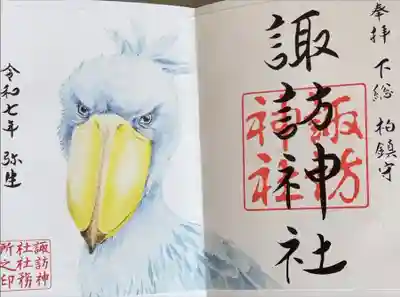 奉拝 下総 柏鎮守
諏訪神社
諏訪
神社
令和七年 弥生
諏訪神
社社務
所之印